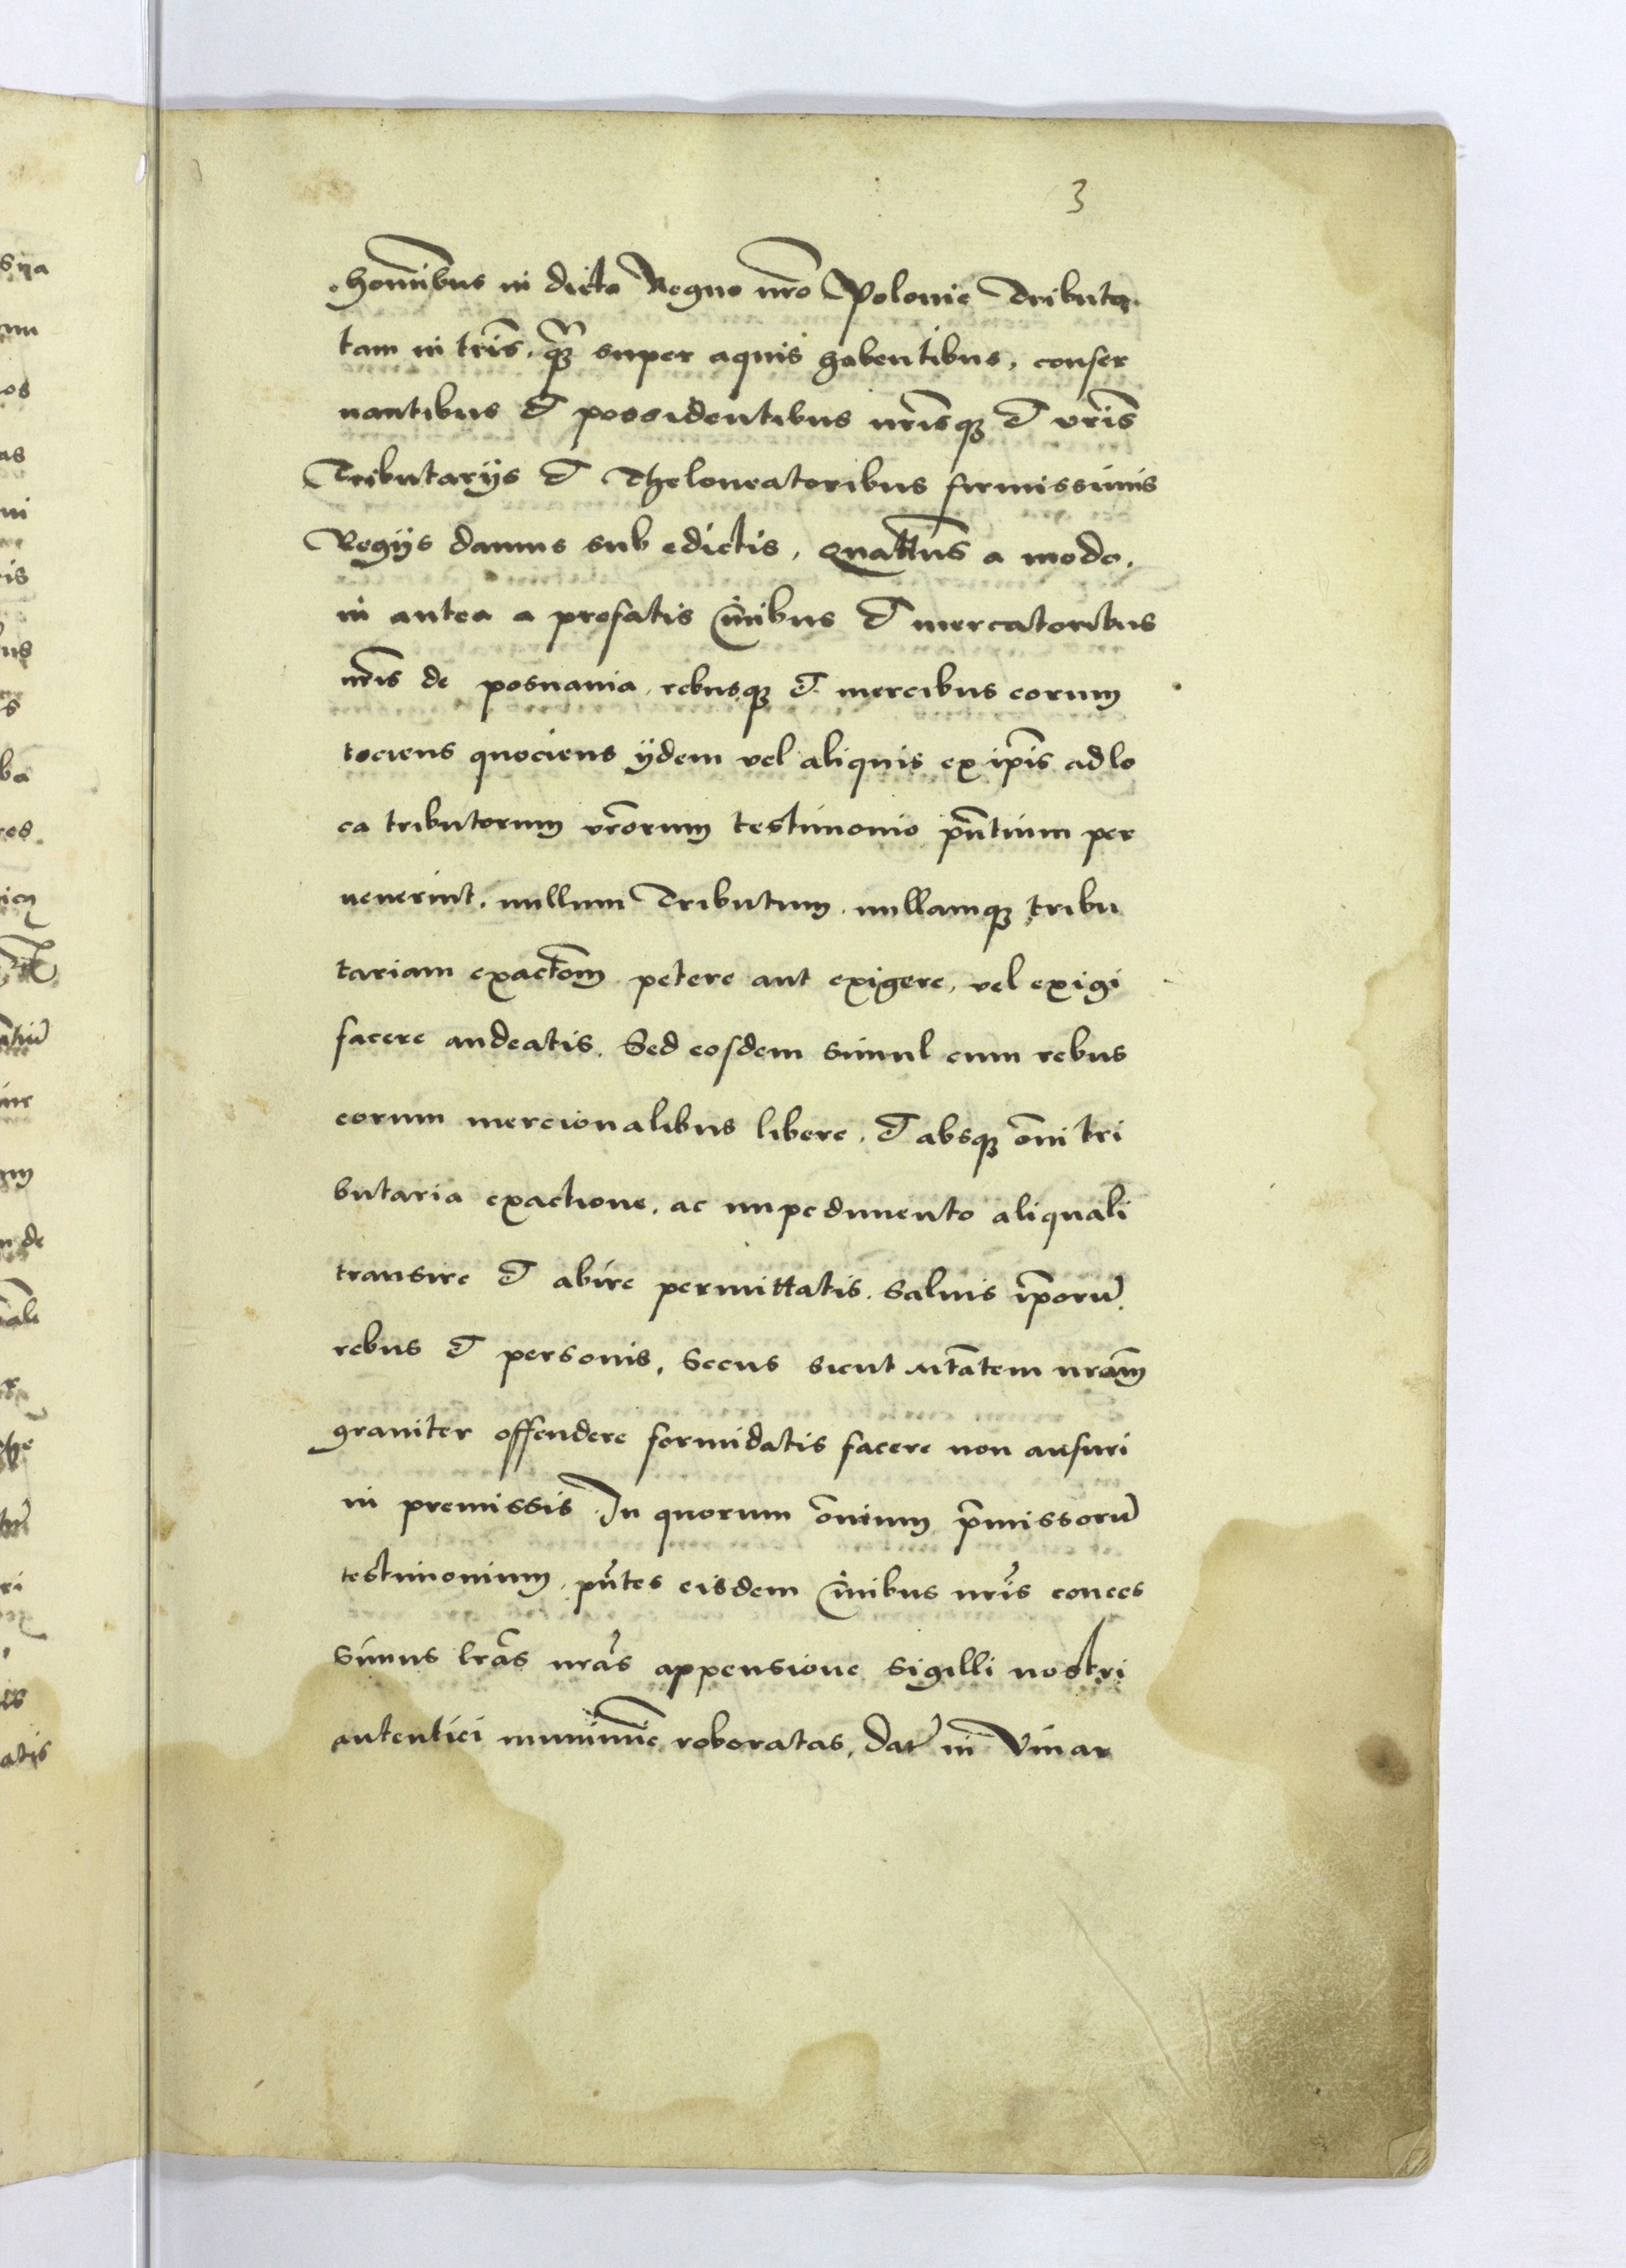 3
hom̄ibus in dicto Regno nr̄o Polonie Tributa.
tam in tr̄is. q̄ꝫ super aquis habentibus, conser
uantibus et possidentibus nr̄isqꝫ et vr̄is
Tributarijs et Theloneatoribus firmissimis
Regijs damus sub edictis, Quatt̄us a modo.
in antea a prefatis Ciuibus et mercatoribus
nr̄is de posnania, rebusqꝫ et mercibus eorum
tociens quociens ijdem vel aliquis ex ip̄is ad lo
ca tributorum vr̄orum testimonio pn̄tium per
uenerint. nullum Tributum. nullamqꝫ tribu
tariam exactōm petere aut exigere, vel exigi
facere audeatis. Sed eosdem simul cum rebus
eorum mercionalibus libere. et absqꝫ om̄i tri
butaria exactione. ac impedimento aliquali
transire et abire permittatis. saluis ip̄orū
rebus et personis, Secus sicut M̄tatem nr̄am
grauiter offendere formidatis facere non ausuri
in premissis. In quorum om̄ium p̄missorū
testimonium. pn̄tes eisdem Ciuibus nr̄is conces
simus lr̄as nr̄as appensione sigilli nostri
autentici munimīe roboratas, Dat̄ in Vinar